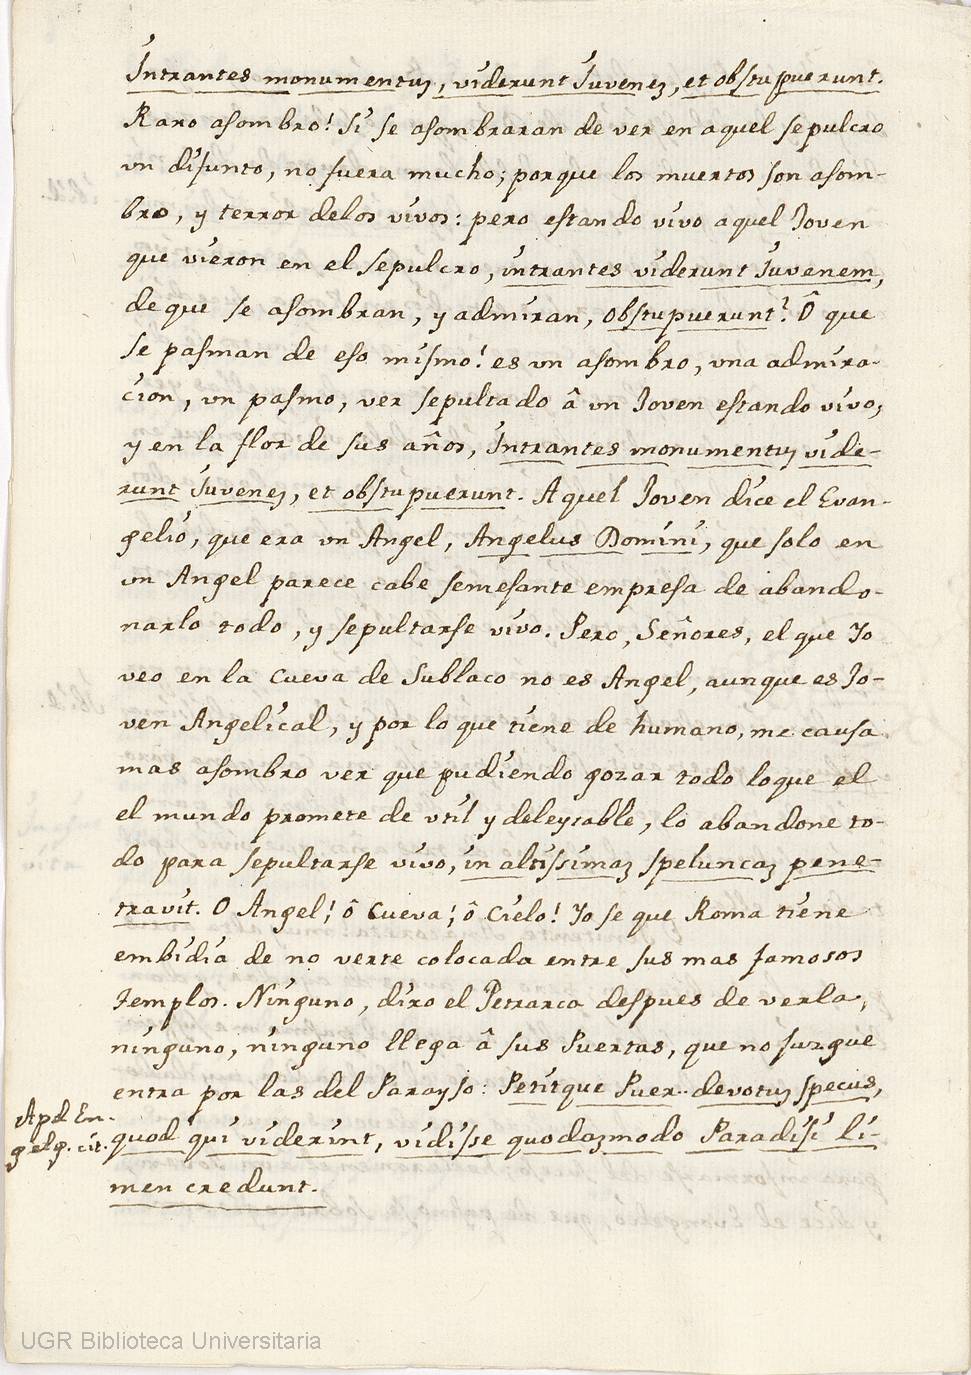 Intrantes monumentuz, viderunt Juvenez, et obstupuerunt.
Raro asombro! Si se asombraran de ver en aquel sepulcro
vn difunto, no fuera mucho; porque los muertos son asom-
bro, y terror delos vivos: pero estando vivo aquel Joven
que vieron en el sepulcro, intrantes viderunt Juvenem,
de que se asombran, y admiran, obstupuerunt? Ô que
se pasman de eso mismo! es vn asombro, vna admira-
cion, vn pasmo, ver sepultado â vn Joven estando vivo,
y en la flor de sus años, Intrantes monumentuz vide-
runt Juvenez, et obstupuerunt. Aquel Joven dice el Evan-
gelio, que era vn Angel, Angelus Domini, que solo en
vn Angel parece cabe semejante empresa de abando-
narlo todo, y sepultarse vivo. Pero, Señores, el que Yo
veo en la Cueva de Sublaco no es Angel, aunque es Jo-
ven Angelical, y por lo que tiene de humano, me causa
mas asombro ver que pudiendo gozar todo loque el
el mundo promete de vtil y deleytable, lo abandone to-
do para sepultarse vivo, in altissimaz speluncaz pene-
travit. O Angel! ô Cueva! ô Cielo! Yo se que Roma tiene
embidia de no verte colocada entre sus mas famosos
templos. Ninguno, dixo el Petrarca despues de verla,
ninguno, ninguno llega â sus Puertas, que no juzgue
entra por las del Parayso: Petitque Puer.. devotuz specus,
Apd En-
gelg. cit.
quod qui viderint, vidisse quodazmodo Paradisi li-
men credunt.
UGR Biblioteca Universitaria